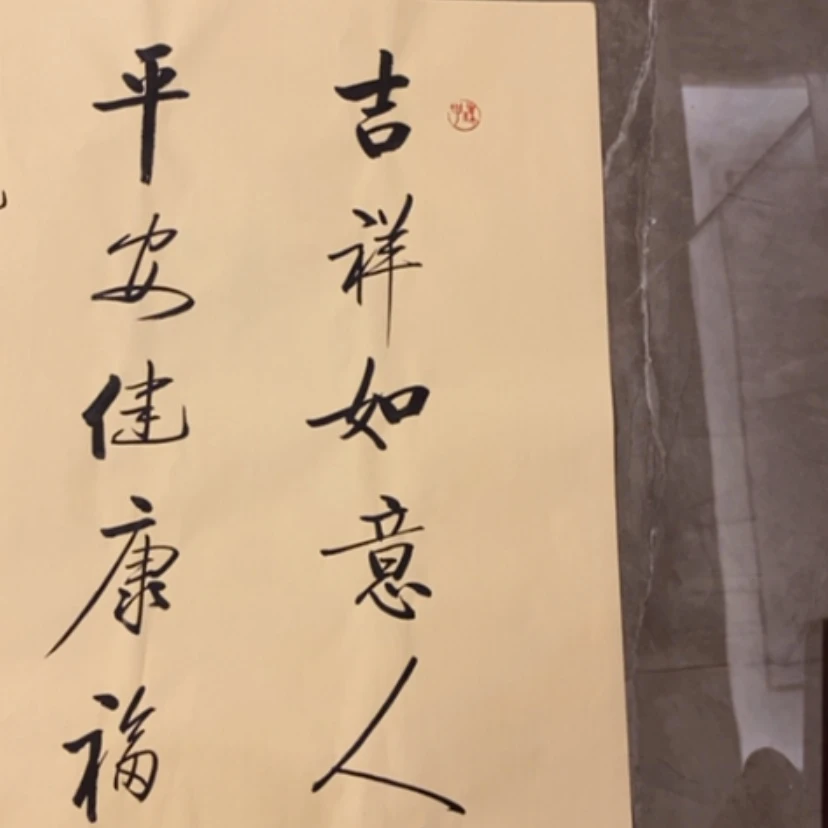 吉祥如意人
平安健康福